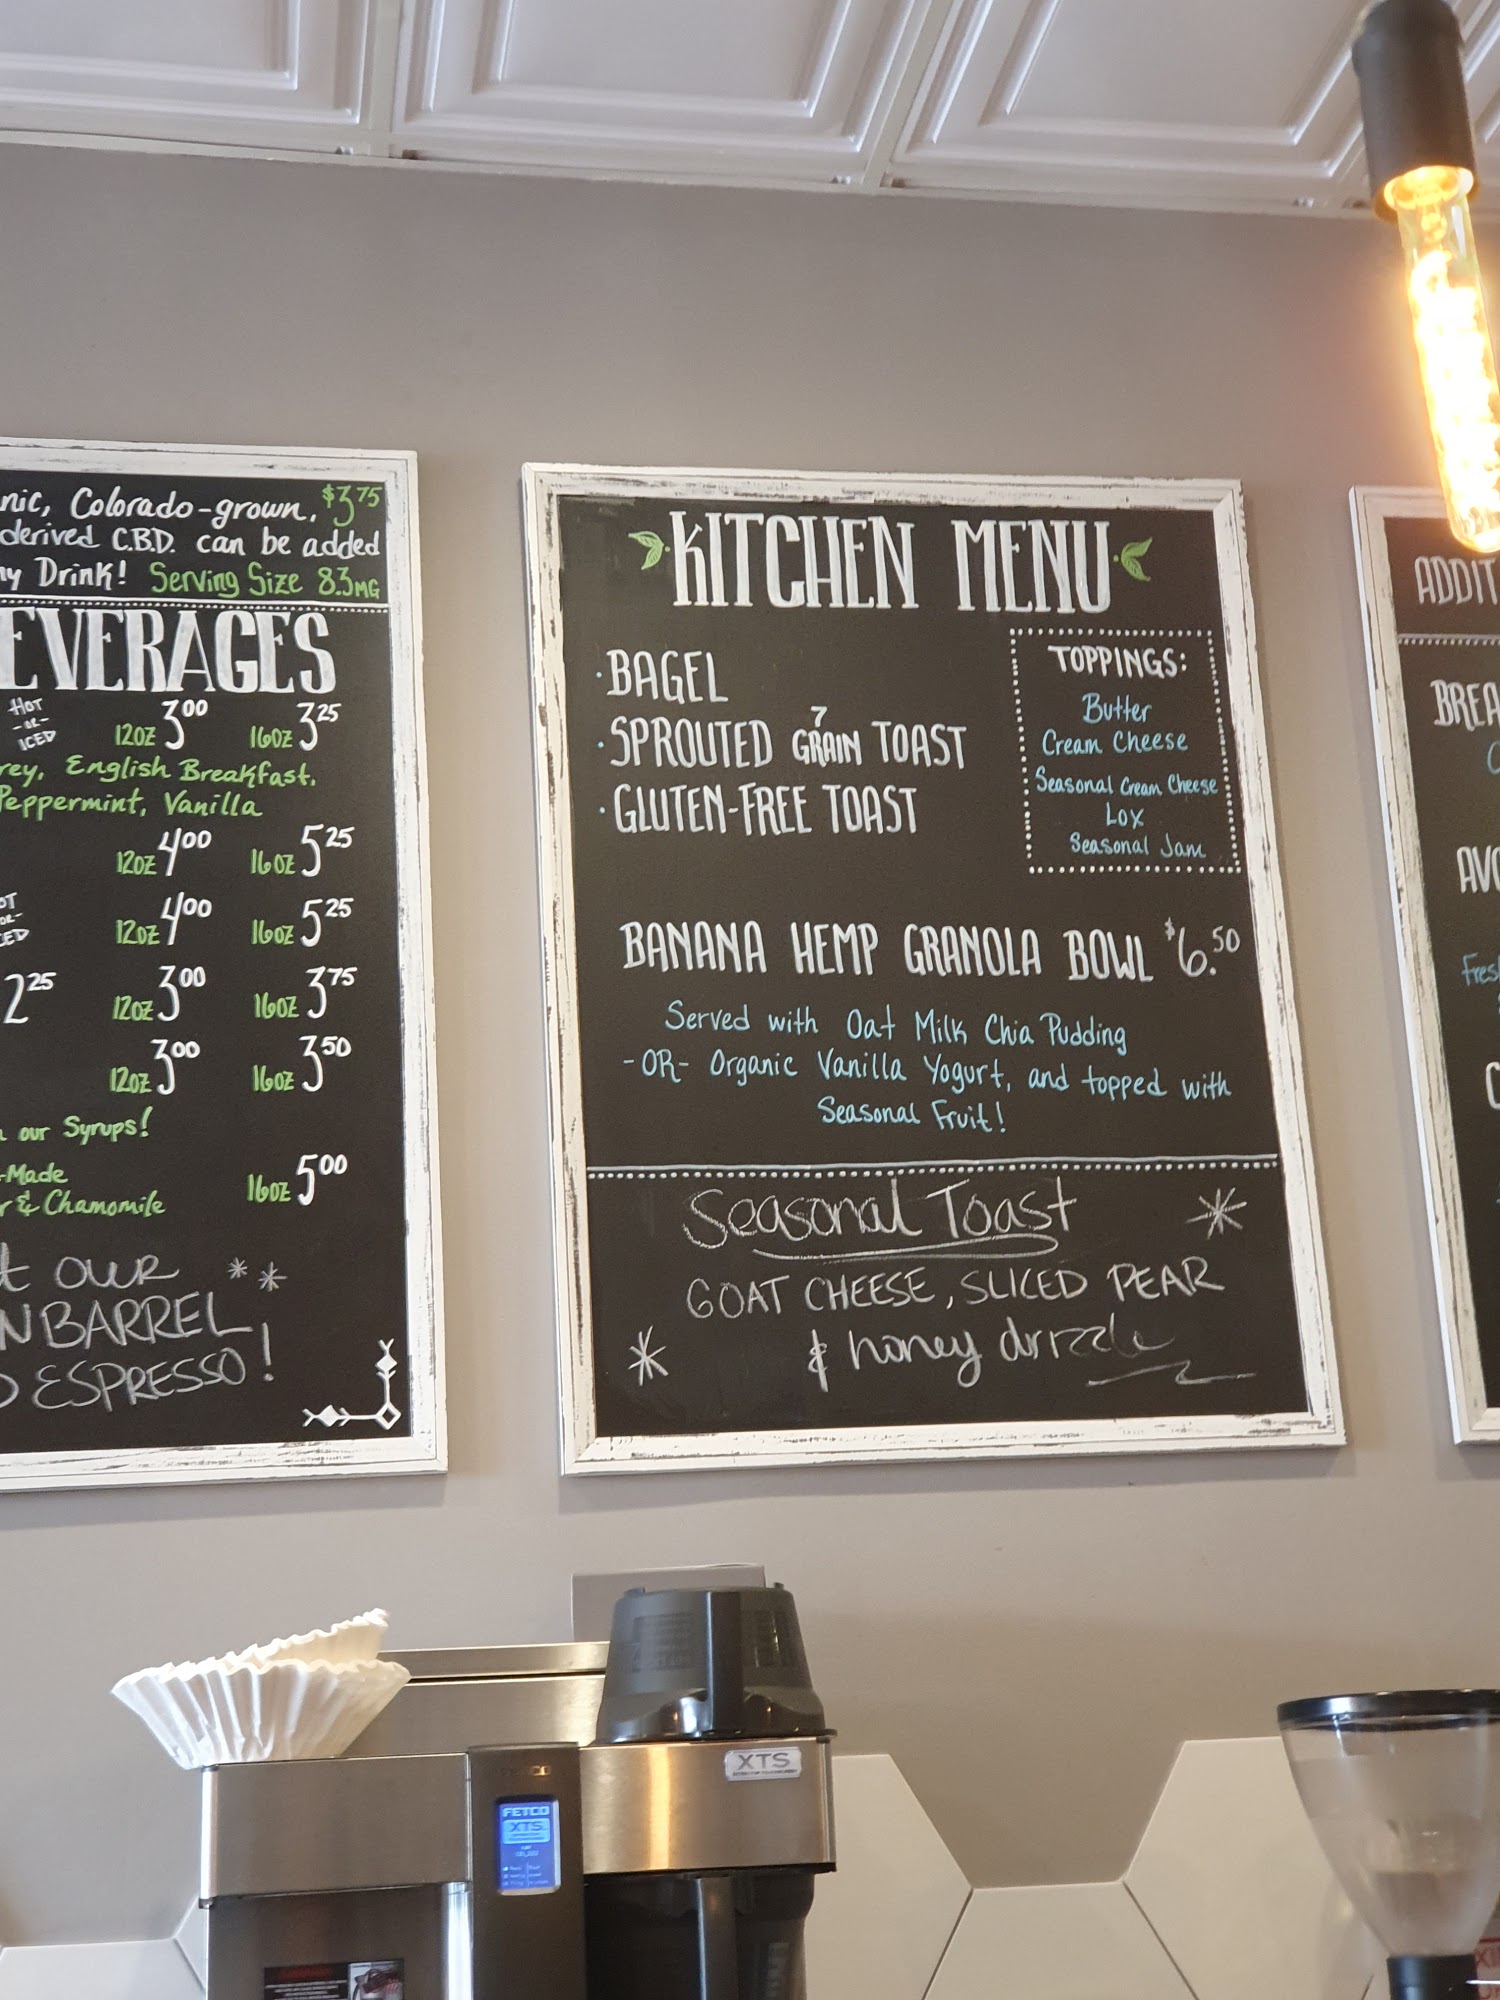 nic, Colorado-grown, $3.75
derived C.B.D. can be added
ny Drink! Serving Size 8.3MG
EVERAGES
HOT
-OR-
ICED
12OZ 3.00 16OZ 3.25
rey, English Breakfast,
Peppermint, Vanilla
12OZ 4.00 16OZ 5.25
OT
-OR-
CED
12OZ 4.00 16OZ 5.25
2.25 12OZ 3.00 16OZ 3.75
12OZ 3.00 16OZ 3.50
our Syrups!
-Made
r & Chamomile 16OZ 5.00
t OUR
N BARREL
D ESPRESSO!
KITCHEN MENU
· BAGEL
· SPROUTED 7 GRAIN TOAST
· GLUTEN-FREE TOAST
TOPPINGS:
Butter
Cream Cheese
Seasonal Cream Cheese
Lox
Seasonal Jam
BANANA HEMP GRANOLA BOWL $6.50
Served with Oat Milk Chia Pudding
-OR- Organic Vanilla Yogurt, and topped with
Seasonal Fruit!
Seasonal Toast
GOAT CHEESE, SLICED PEAR
& honey drizzle
ADDIT
BREA
AVO
Fres
XTS
FETCO
XTS